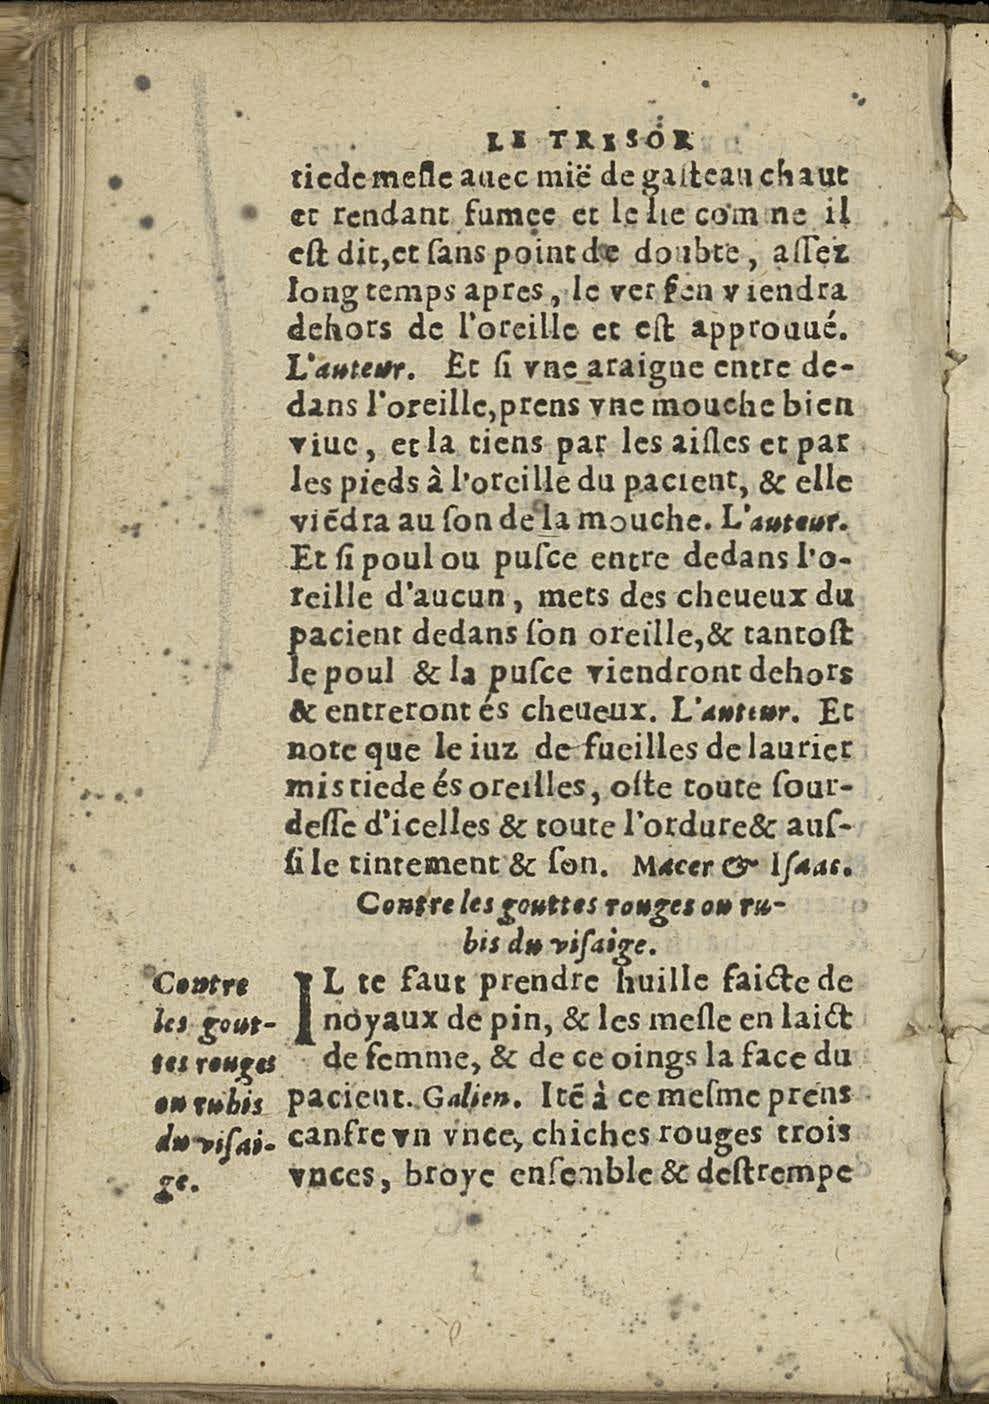 LE TRESOR
tiede mesle auec mië de gasteau chaut
et rendant fumee et le lie comme il
est dit, et sans point de doubte, assez
long temps apres, le ver s'en viendra
dehors de l'oreille et est approuué.
L'auteur. Et si vne araigne entre de-
dans l'oreille, prens vne mouche bien
viue, et la tiens par les aisles et par
les pieds à l'oreille du pacient, & elle
viēdra au son de la mouche. L'auteur.
Et si poul ou pusce entre dedans l'o-
reille d'aucun, mets des cheueux du
pacient dedans son oreille, & tantost
le poul & la pusce viendront dehors
& entreront és cheueux. L'auteur. Et
note que le iuz de fueilles de laurier
mis tiede és oreilles, oste toute sour-
desse d'icelles & toute l'ordure & aus-
si le tintement & son. Macer & Isaac.
Contre les gouttes rouges ou ru-
bis du visaige.
Contre
les gout-
tes rouges
ou rubis
du visai-
ge.
IL te faut prendre huille faicte de
noyaux de pin, & les mesle en laict
de femme, & de ce oings la face du
pacient. Galien. Itē à ce mesme prens
canfre vn vnce, chiches rouges trois
vnces, broye ensemble & destrempe